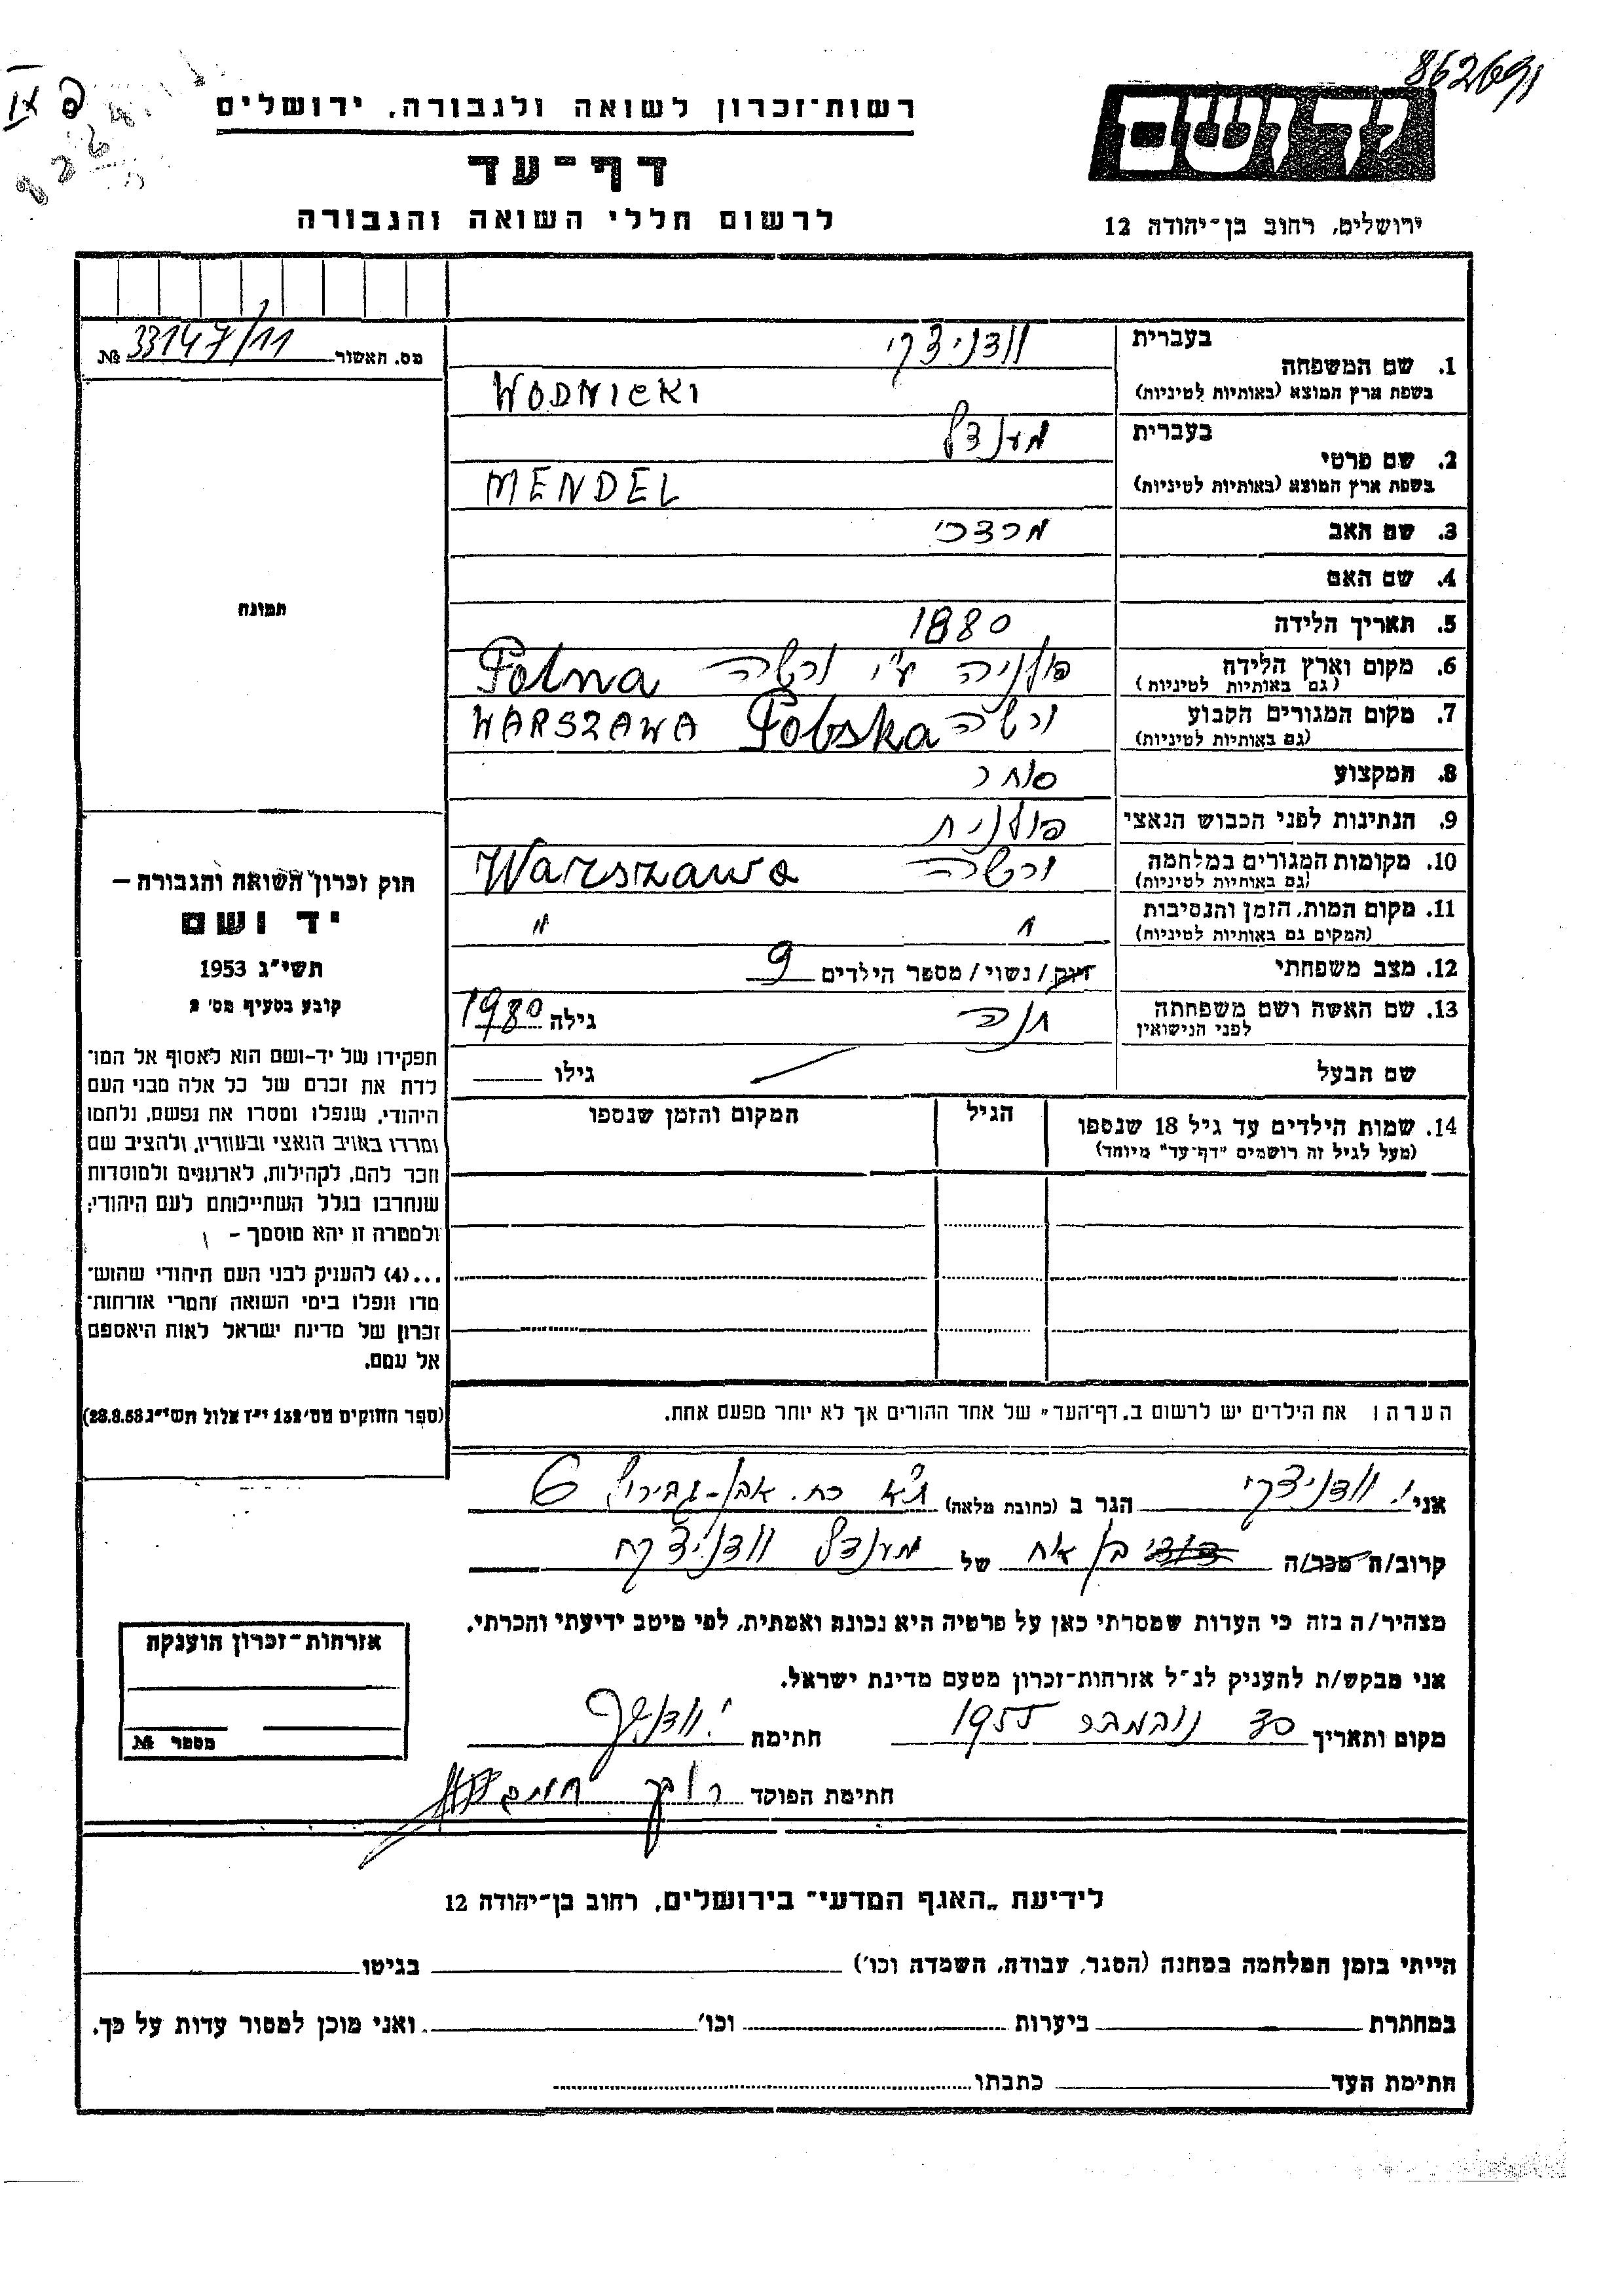 862691
רשות־זכרון לשואה ולגבורה, ירושלים
יד ושם
דף־עד
לרשום חללי השואה והגבורה
ירושלים, רחוב בן־יהודה 12
מס. האשור 33147/11 №
בעברית וודניצקי
1. שם המשפחה
בשפת ארץ המוצא (באותיות לטיניות) WODNICKI
בעברית מענדל
2. שם פרטי
בשפת ארץ המוצא (באותיות לטיניות) MENDEL
3. שם האב מרדכי
4. שם האם
5. תאריך הלידה 1880
6. מקום וארץ הלידה פולניה ע"י ורשה Polna
(גם באותיות לטיניות)
7. מקום המגורים הקבוע ורשה Polska WARSZAWA
(גם באותיות לטיניות)
8. המקצוע סוחר
9. הנתינות לפני הכבוש הנאצי פולנית
10. מקומות המגורים במלחמה ורשה Warszawa
(גם באותיות לטיניות)
11. מקום המות, הזמן והנסיבות " "
(המקום גם באותיות לטיניות)
12. מצב משפחתי רווק/נשוי/מספר הילדים 9
13. שם האשה ושם משפחתה חנה גילה 1980
לפני הנישואין
שם הבעל גילו
14. שמות הילדים עד גיל 18 שנספו הגיל המקום והזמן שנספו
(מעל לגיל זה רושמים "דף־עד" מיוחד)
תמונה
חוק זכרון השואה והגבורה –
יד ושם
תשי"ג 1953
קובע בסעיף מס' 2
תפקידו של יד-ושם הוא לאסוף אל המו־
לדת את זכרם של כל אלה מבני העם
היהודי, שנפלו ומסרו את נפשם, נלחמו
ומרדו באויב הנאצי ובעוזריו, ולהציב שם
וזכר להם, לקהילות, לארגונים ולמוסדות
שנחרבו בגלל השתייכותם לעם היהודי;
ולמטרה זו יהא מוסמך –
...(4) להעניק לבני העם היהודי שהוש־
מדו ונפלו בימי השואה והמרי אזרחות־
זכרון של מדינת ישראל לאות היאספם
אל עמם.
(ספר החוקים מס' 132 י"ז אלול תשי"ג 28.8.53)
הערה: את הילדים יש לרשום ב„דף־העד" של אחד ההורים אך לא יותר מפעם אחת.
אני י. וודניצקי הגר ב (כתובת מלאה) ת"א רח. אבן-גבירול 6
קרוב/ה מכר/ה בן אח של מענדל וודניצקי
מצהיר/ה בזה כי העדות שמסרתי כאן על פרטיה היא נכונה ואמתית, לפי מיטב ידיעתי והכרתי.
אני מבקש/ת להעניק לנ"ל אזרחות־זכרון מטעם מדינת ישראל.
מקום ותאריך 30 נובמבר 1955 חתימה
חתימת הפוקד
אזרחות־זכרון הוענקה
מספר №
לידיעת „האגף המדעי" בירושלים, רחוב בן־יהודה 12
הייתי בזמן המלחמה במחנה (הסגר, עבודה, השמדה וכו') בגיטו
במחתרת ביערות וכו' ואני מוכן למסור עדות על כך.
חתימת העד כתבתו